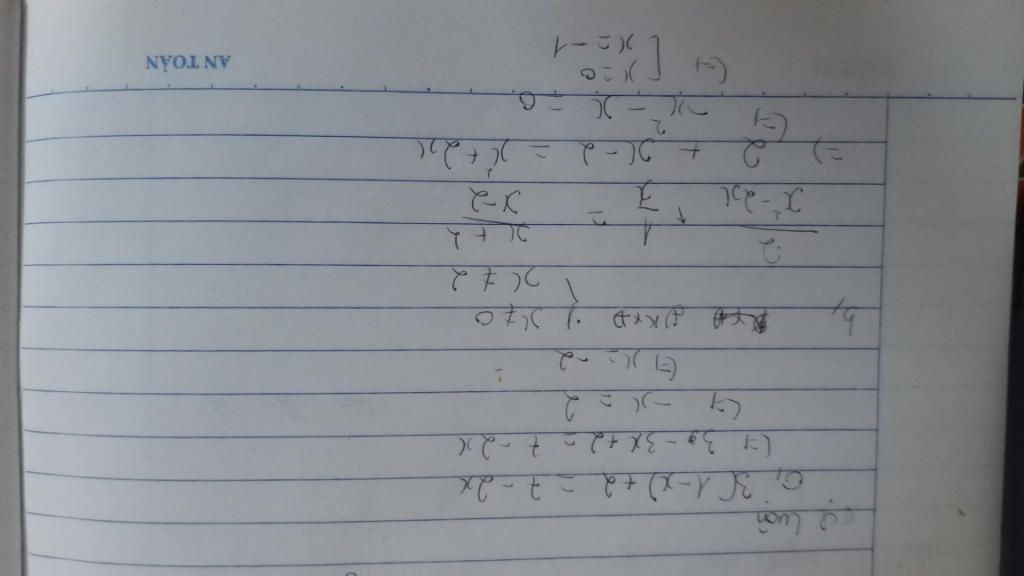 Tự luận
a, 3(1-x)+2 = 7-2x
(=) 3-3x+2 = 7-2x
(=) -x = 2
(=) x = -2
b, ĐKXĐ: { x ≠ 0
x ≠ 2
2/(x²-2x) + 1/x = (x+2)/(x-2)
=) 2 + x-2 = x²+2x
(=) -x² - x = 0
(=) [ x=0
x=-1
AN TOÀN